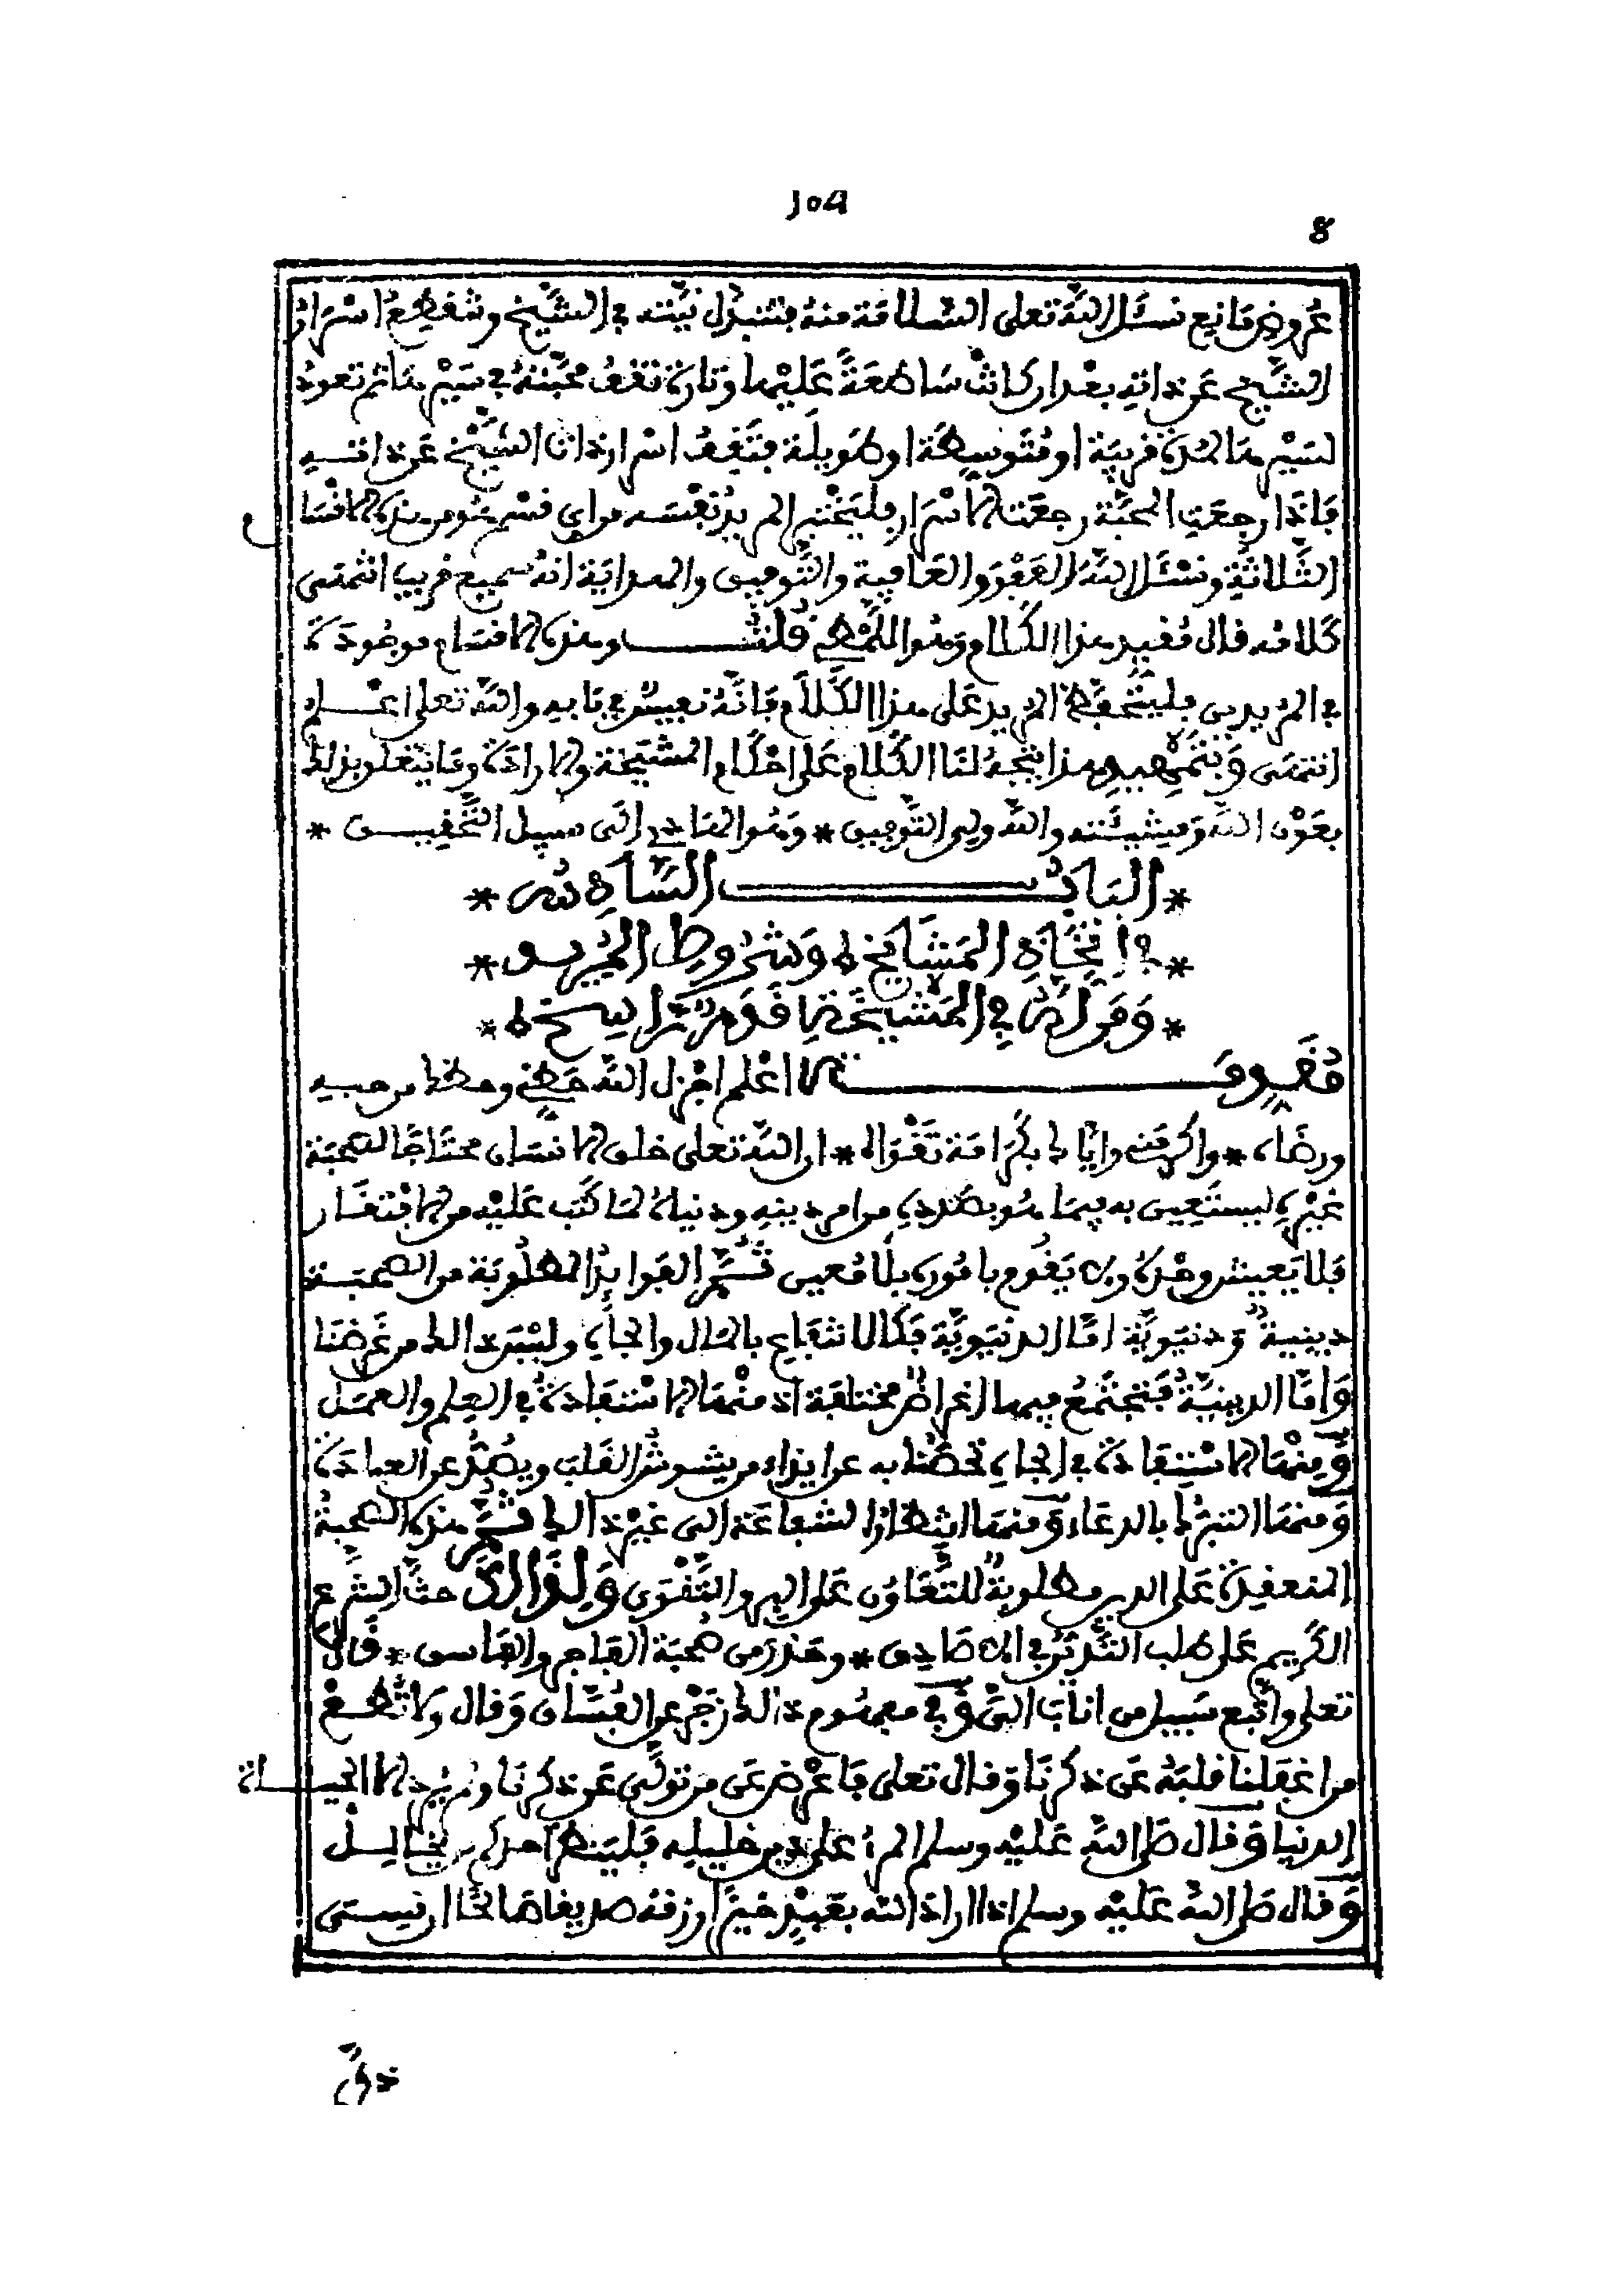 104
8
عروض مانع نسئل الله تعلى السلامة منه فتتبدل نيته في الشيخ وتنقطع اسرار
الشيخ عن ذاته بعد ان كانت ساطعة عليها وتارة تقف محبته في سيرها ثم تعود
لسيرها لمدة قريبة او متوسطة او طويلة فتقف اسرار ذات الشيخ عن ذاته
فاذا رجعت المحبة رجعت الاسرار فليختبر المريد نفسه من اي قسم هو من هذه الاقسا
م
الثلاثة ونسئل الله العفو والعافية والتوفيق والهداية انه سميع قريب انتهى
كلامه قال مقيد هذا الكلام وهو اللمطي قلت وهذه الاقسام موجودة
في المريدين فليتحفظ المريد على هذا الكلام فانه نفيس في بابه والله تعلى اعلم
انتهى وبتمهيد هذا يتجه لنا الكلام على احكام المشيخة والارادة وما يتعلق بذلك
بعون الله ومشيئته والله ولي التوفيق * وهو الهادي الى سبيل التحقيق *
* الباب السادس *
* في اتخاذ المشايخ وشروط المريد *
* ومن له في المشيخة قدم راسخ *
مقدمة اعلم اجزل الله حظي وحظك من حبه
ورضاه * واكرمني واياك بكرامة تقواه * ان الله تعلى خلق الانسان محتاجا لصحبة
غيره ليستعين به فيما هو بصدده من امر دينه ودنياه لما كتب عليه من الافتقار
فلا يعيش وحده ولا يقوم باموره بلا معين ثم الفوائد المطلوبة من الصحبة
دينية ودنيوية اما الدنيوية فكالانتفاع بالمال والجاه وليس ذلك من غرضنا
واما الدينية فتجتمع فيها اغراض مختلفة اذ منها الاستفادة في العلم والعمل
ومنها الاستفادة في الجاه تحصنا به عن ايذاء من يشوش القلب ويصد عن العبادة
ومنها التبرك بالدعاء ومنها انتظار الشفاعة الى غير ذلك ثم هذه الصحبة
المنعقدة على الدين مطلوبة للتعاون على البر والتقوى ولذالك حث الشرع
الكريم على طلب التدبر في الاصادق * وحذر من صحبة الفاجر والفاسق * قال
تعلى واتبع سبيل من اناب الي وفي مفهوم ذالك زجر عن الفساق وقال ولا تطع
من اغفلنا قلبه عن ذكرنا وقال تعلى فاعرض عن من تولى عن ذكرنا ولم يرد الا الحياة
الدنيا وقال صلى الله عليه وسلم المرء على دين خليله فلينظر احدكم من يخالل
وقال صلى الله عليه وسلم اذا اراد الله بعبد خيرا رزقه صديقا صالحا ان نسي